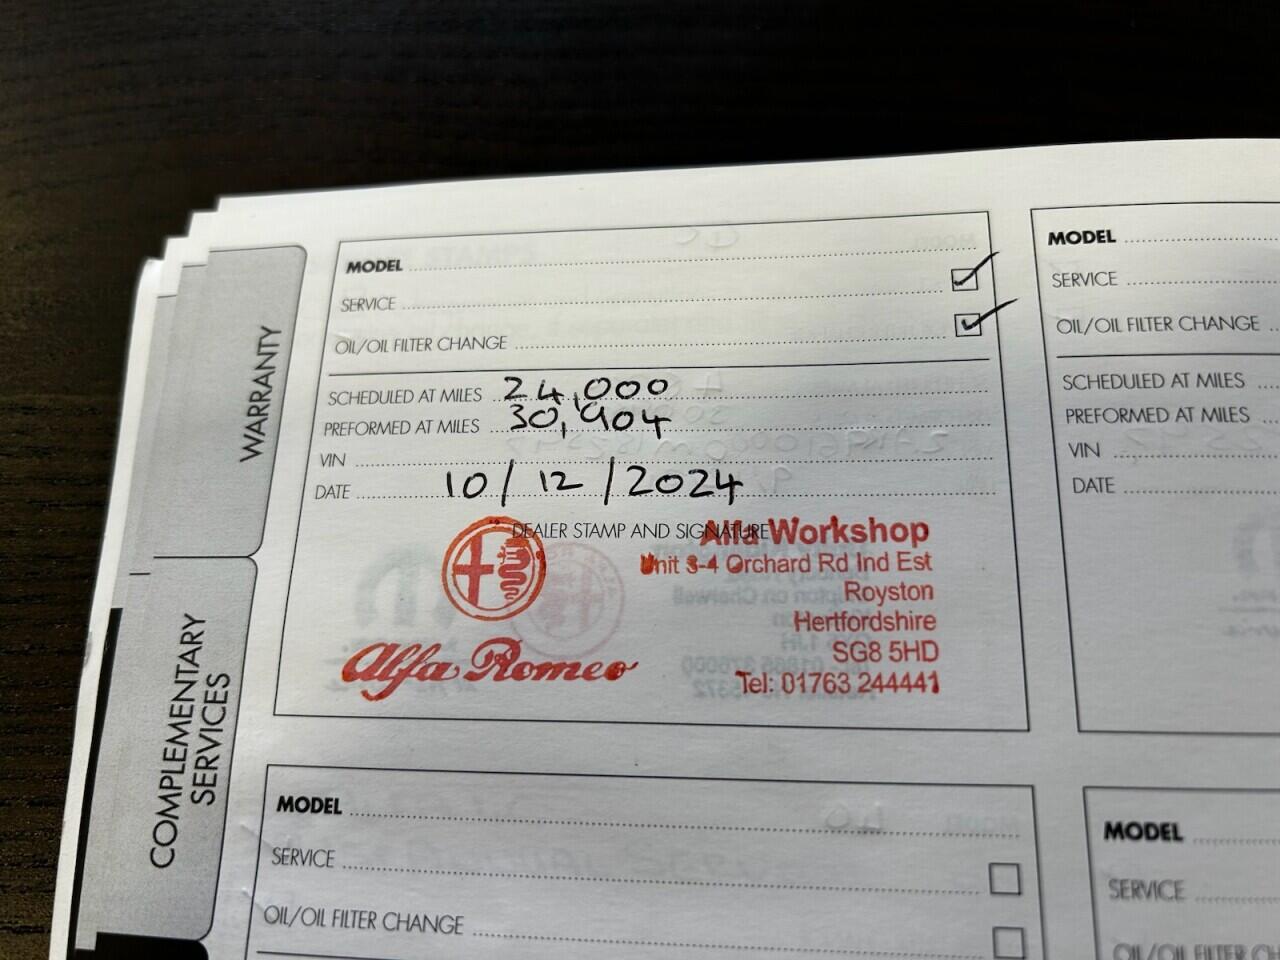 WARRANTY
COMPLEMENTARY
SERVICES
MODEL
SERVICE
OIL/OIL FILTER CHANGE
SCHEDULED AT MILES 24,000
PREFORMED AT MILES 30,904
VIN
DATE 10/12/2024
DEALER STAMP AND SIGNATURE
Alfa Romeo
Alfa Workshop
Unit 3-4 Orchard Rd Ind Est
Royston
Hertfordshire
SG8 5HD
Tel: 01763 244441
MODEL
SERVICE
OIL/OIL FILTER CHANGE
SCHEDULED AT MILES
PREFORMED AT MILES
VIN
DATE
MODEL
SERVICE
OIL/OIL FILTER CHANGE
MODEL
SERVICE
OIL/OIL FILTER CH